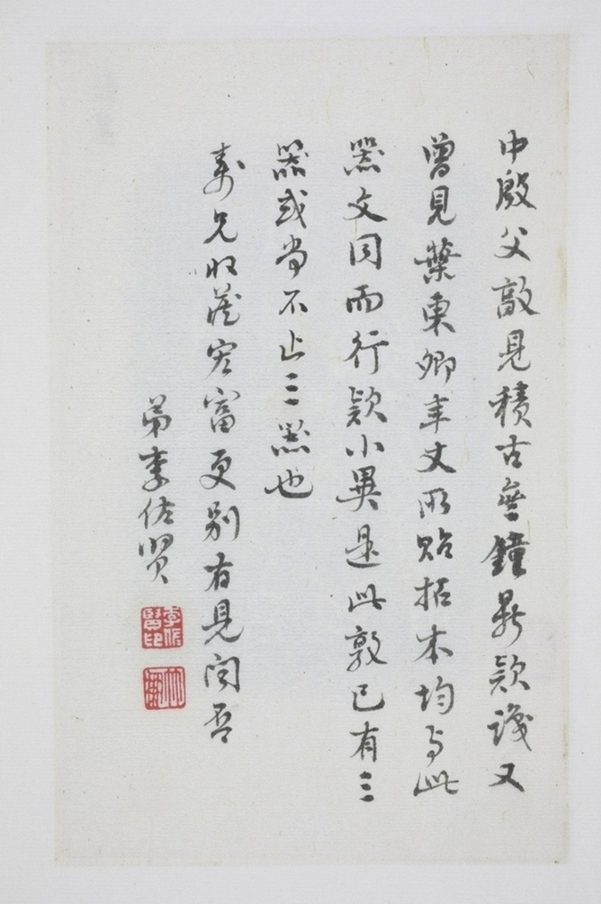 中殷父敦見積古齋鐘鼎款識又
曾見葉東卿年丈所貽拓本均與此
器文同而行款小異是此敦已有三
器或尚不止三器也
壽兄收藏宏富更別有見聞否
弟李佐賢
李佐賢印
竹朋